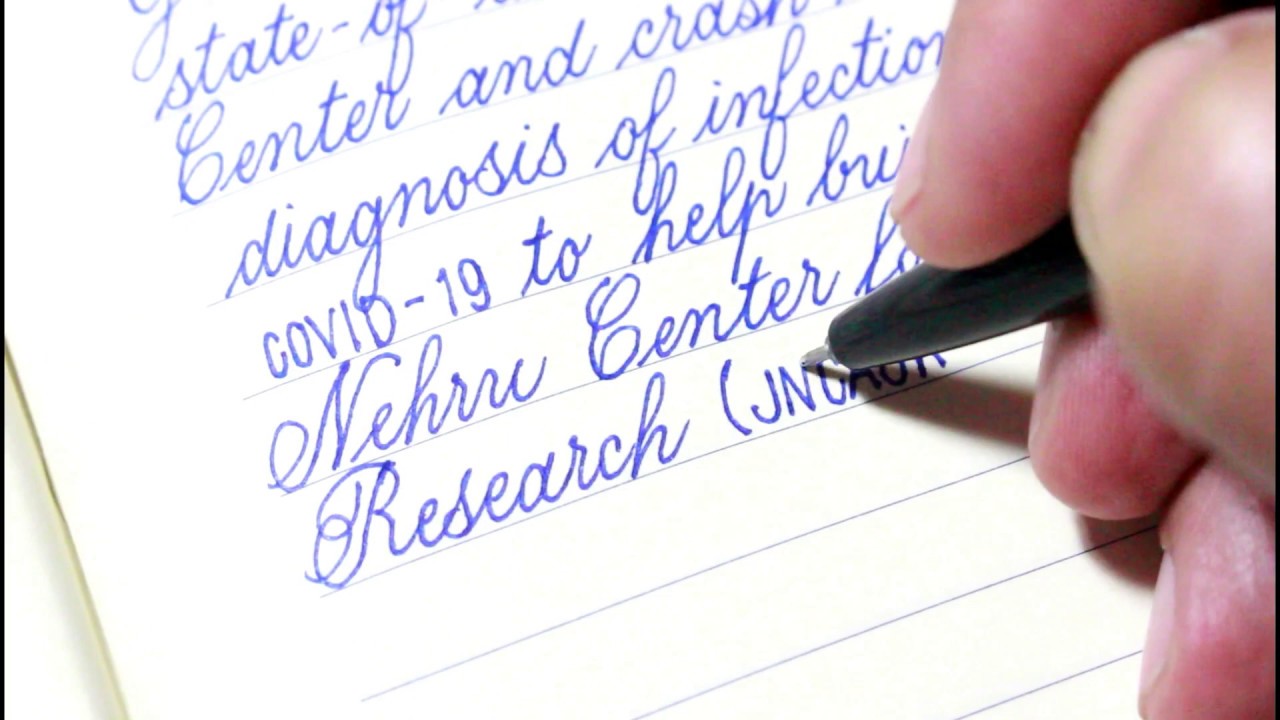 state-of
Center and crash
diagnosis of infection
COVID-19 to help
Nehru Center
Research (JNCASR